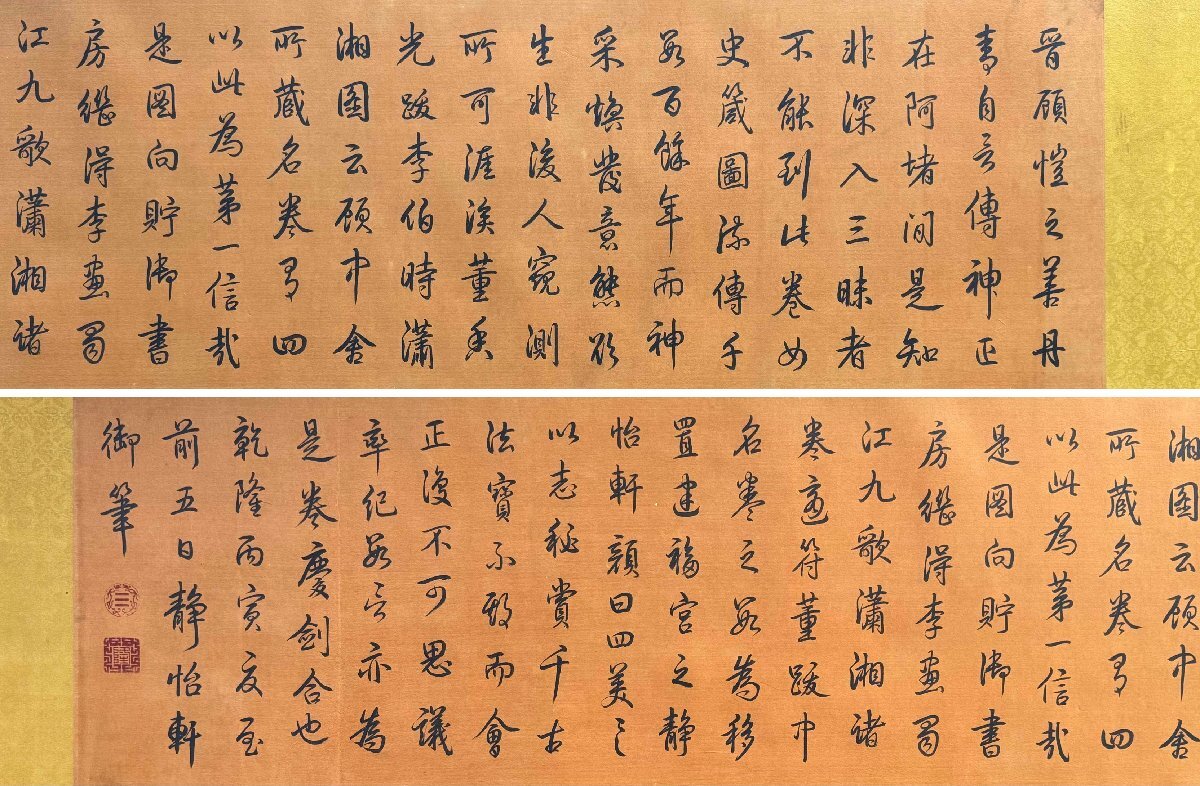 晉顾愷之善丹
青自言傳神正
在阿堵间是知
非深入三昧者
不能到此卷女
史箴圖流傳千
数百餘年而神
采煥發意態欲
生非後人窺測
所可涯涘董香
光跋李伯時瀟
湘图云顾中舍
所蔵名卷有四
以此為第一信哉
是图向貯御書
房繼得李画蜀
江九歌瀟湘諸
湘图云顾中舍
所蔵名卷有四
以此為第一信哉
是图向貯御書
房繼得李画蜀
江九歌瀟湘諸
卷適符董跋中
名卷之数為移
置建福宮之静
怡軒顏曰四美具
以志秘賞千古
法寶不期而會
正復不可思議
率紀数言亦為
是卷慶劍合也
乾隆丙寅夏至
前五日静怡軒
御筆